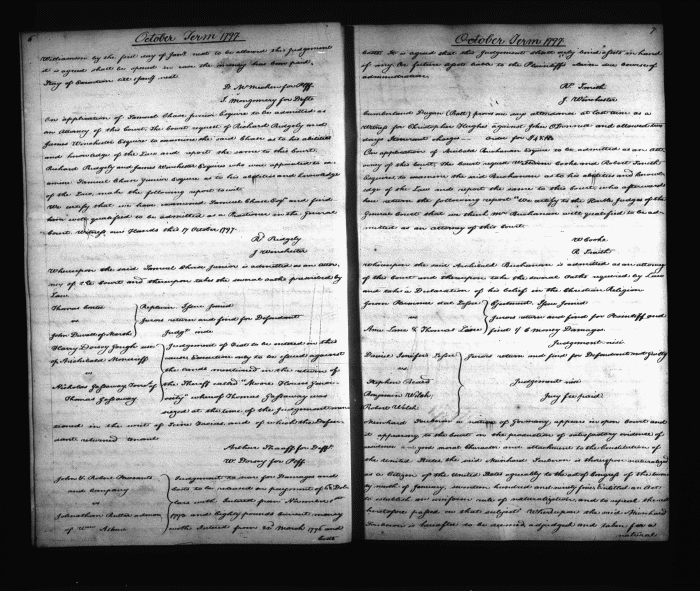 6
October Term 1797
Williamson by the first day of Jany next to be allowed this Judgement
it is agreed shall be opened in case the money has been paid.
Stay of Execution till 1 Jany next
D. McMechen for Plff.
J. Montgomery for Defts
On application of Samuel Chase junior Esquire to be admitted as
an attorney of this Court. The Court request of Richard Ridgely and
James Winchester Esquires to examine the said Chase as to his abilities
and knowledge of the Law and report the same to this Court.
Richard Ridgely and James Winchester Esquires who were appointed to ex-
amine Samuel Chase Junior Esquire as to his abilities and knowledge
of the Law, make the following report to wit.
We certify that we have examined Samuel Chase Esqr and find
him well qualified to be admitted as a Practicer in the General
Court. Witness our Hands this 17 October 1797.
Rd Ridgely
J Winchester
Whereupon the said Samuel Chase Junior is admitted as an attor-
ney of the Court and thereupon takes the several oaths prescribed by
Law
Thomas
vs
John Duvall of Marsh
Replevin. Issue Joined
Jurors return and find for Defendant
Judgt. nisi
Harry Dorsey Gough use
of Archibald Moncrieff
vs
Nicholas Gassaway Terre Tenant of
Thomas Gassaway
Judgement of Fiat to be entered in this
case, Execution only to be issued against
the Lands mentioned in the return of
the Sheriff called
whereof Thomas Gassaway was
seized at the time of the Judgement men
tioned in the writ of Scire Facias and of which the Defen-
dant returned tenant
Arthur Shaaff for Defft.
W. Dorsey for Plff
John & Robert
and Company
vs
Johnathan Rutter admon
of Wm Asher
Judgement to war for Damages and
Costs to be released on payment of
lars with Interest from November
1792 and eighty pounds current money
with Interest from 22d March 1796 and
Costs
7
October Term 1797
Costs. It is agreed that this Judgement shall only bind assets in hand
if any. Or future assets liable to the Plaintiffs claim in due course of
administration.
Rt Smith
J Winchester
Cumberland Dugan (Balt) proves my attendance at last term as a
Witness for Christopher Hughes against John O'Donnell and allowed two
days Itinerant charges order for
On application of Archibald Buchanan Esquire to be admitted as an Att-
orney of this Court, the Court request William Cooke and Robert Smith
Esquires, to examine the said Buchanan as to his abilities and knowl-
edge of the Law and report the same to this Court, who afterwards
here return the following report "We certify to the Honble Judges of the
General Court that in which Mr Buchanan well qualified to be ad-
mitted as an attorney of this Court.
W Cooke
R Smith
Whereupon the said Archibald Buchanan is admitted as an attorney
of this Court and thereupon takes the several Oaths required by Law
and takes a Declaration of his belief in the Christian Religion
vs
Ann Lane & Thomas Lane
Ejectment. Issue Joined
Jurors return and find for Plaintiff and
find & 6 money Damages.
Judgement nisi
Daniel Jenifer's Lessee
vs
Stephen Beard
Benjamin Welch
Robert Welch
Jurors return and find for Defendants not guilty
Judgement nisi
Jury fee paid
Meinhard a native of Germany, appears in open Court and
it appearing to the Court on the production of satisfactory evidence of
residence and good moral character and attachment to the Constitution of
the United States, the said Meinhard is therefore naturalized
as a Citizen of the United States agreeably to the act of Congress of the twen
ty ninth of January, seventeen hundred and ninety five, entitled an Act
to establish an uniform rule of naturalization, and to repeal the act
heretofore passed on that subject. Whereupon the said Meinhard
is hereafter to be deemed, adjudged and taken for a
natural